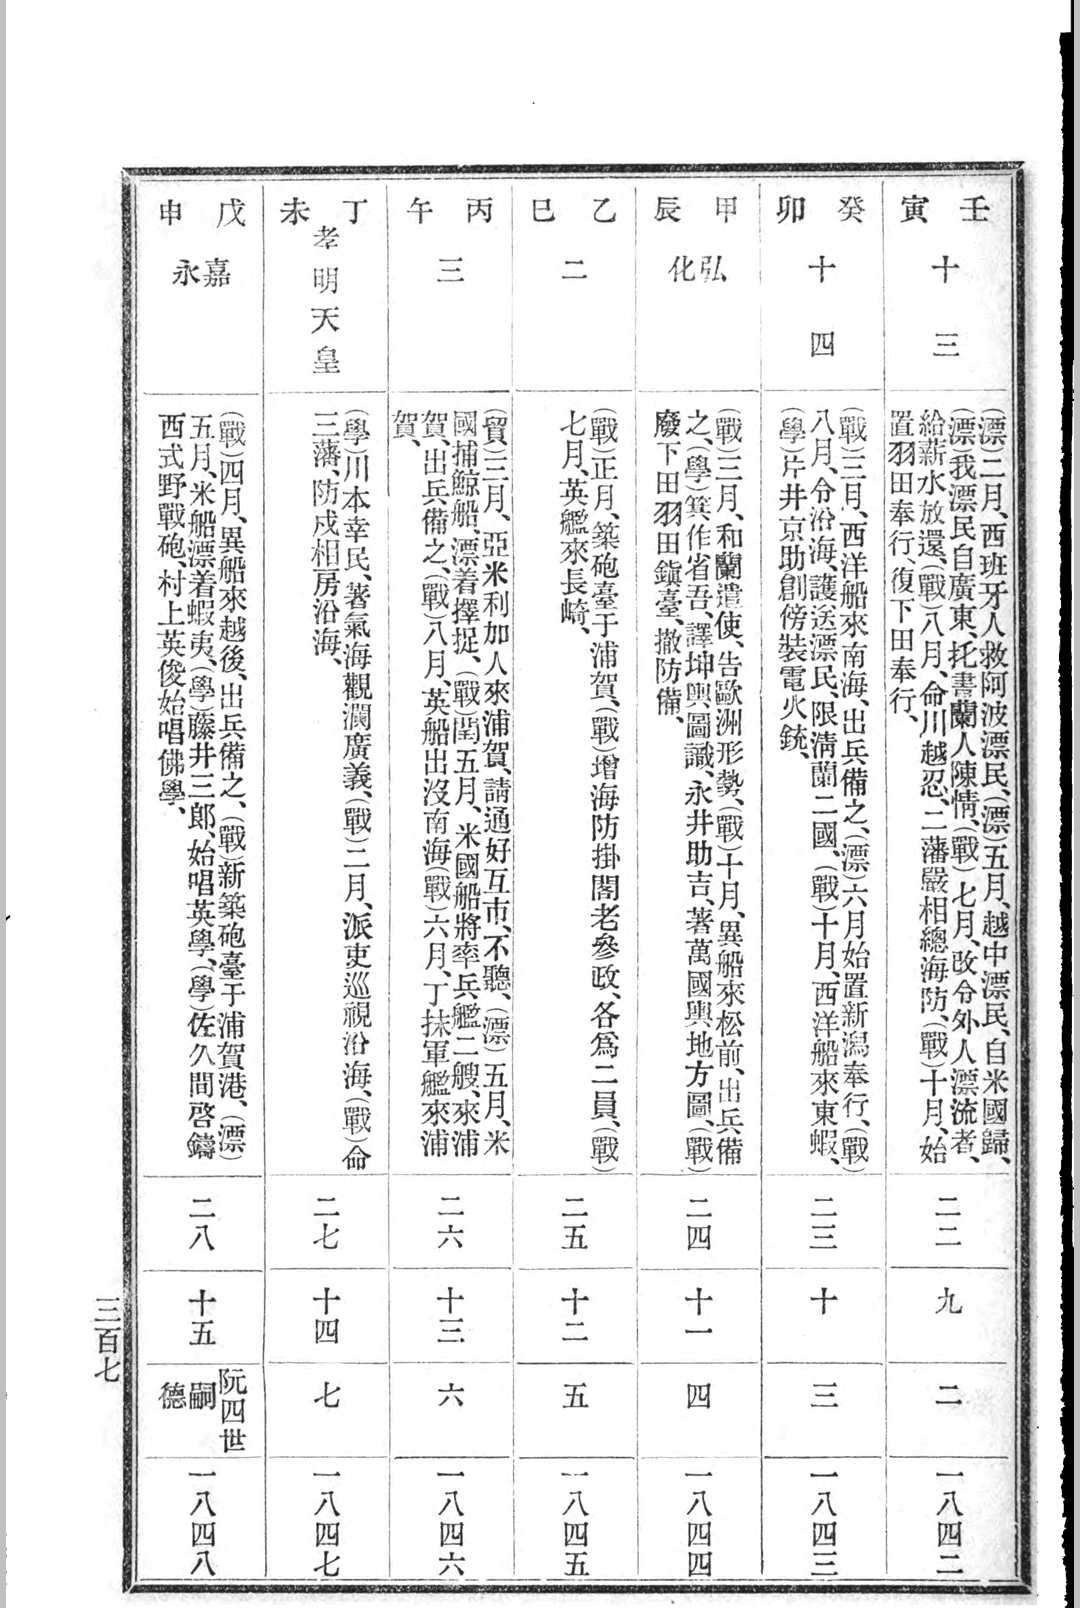 壬寅
十三
(漂)二月、西班牙人救阿波漂民、(漂)五月、越中漂民、自米國歸、
(漂)我漂民自廣東、托書蘭人陳情、(戰)七月、改令外人漂流者、
給薪水放還、(戰)八月、命川越忍、二藩嚴相總海防、(戰)十月、始
置羽田奉行、復下田奉行、
二二
九
二
一八四二
癸卯
十四
(戰)三月、西洋船來南海、出兵備之、(漂)六月始置新潟奉行、(戰)
八月、令沿海、護送漂民、限淸蘭二國、(戰)十月、西洋船來東蝦、
(學)片井京助創傍裝電火銃、
二三
十
三
一八四三
甲辰
弘化
(戰)三月、和蘭遣使、告歐洲形勢、(戰)十月、異船來松前、出兵備
之、(學)箕作省吾、譯坤輿圖識、永井助吉、著萬國輿地方圖、(戰)
廢下田羽田鎭臺、撤防備、
二四
十一
四
一八四四
乙巳
二
(戰)正月、築砲臺于浦賀、(戰)增海防掛閣老參政、各爲二員、(戰)
七月、英艦來長崎、
二五
十二
五
一八四五
丙午
三
(貿)三月、亞米利加人來浦賀、請通好互市、不聽、(漂)五月、米
國捕鯨船、漂着擇捉、(戰)閏五月、米國船將率兵艦二艘、來浦
賀、出兵備之、(戰)八月、英船出沒南海(戰)六月、丁抹軍艦來浦
賀、
二六
十三
六
一八四六
丁未
孝明天皇
(學)川本幸民、著氣海觀瀾廣義、(戰)二月、派吏巡視沿海、(戰)命
三藩、防戍相房沿海、
二七
十四
七
一八四七
戊申
嘉永
(戰)四月、異船來越後、出兵備之、(戰)新築砲臺于浦賀港、(漂)
五月、米船漂着蝦夷、(學)藤井三郎、始唱英學、(學)佐久間啓鑄
西式野戰砲、村上英俊始唱佛學、
二八
十五
阮四世
嗣德
一八四八
三百七